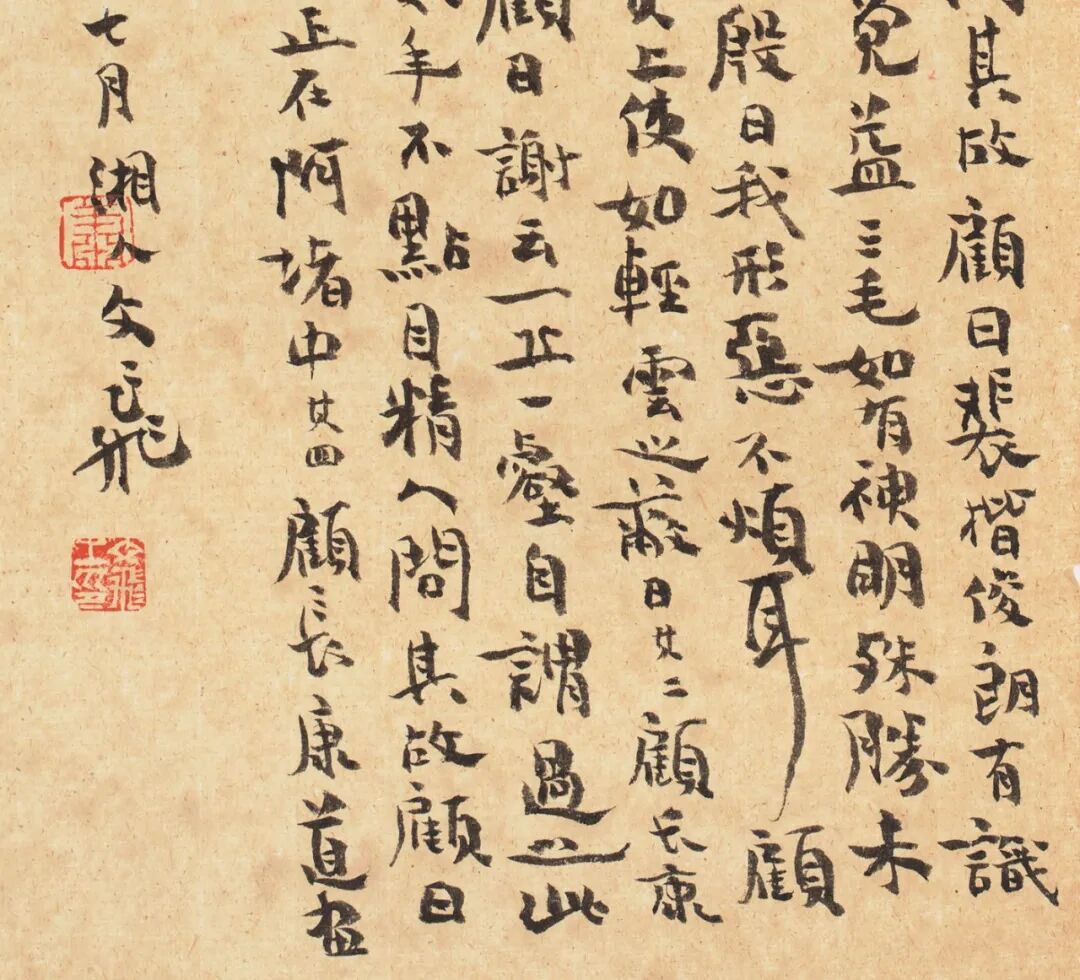 其故顧曰裴楷俊朗有識
覺益三毛如有神明殊勝未
殷曰我形惡不煩耳顧
上使如輕雲之蔽日廿二顧長康
顧曰謝云一丘一壑自謂過之此
手不點目精人問其故顧曰
正在阿堵中廿四顧長康道畫
七月湘人文飛